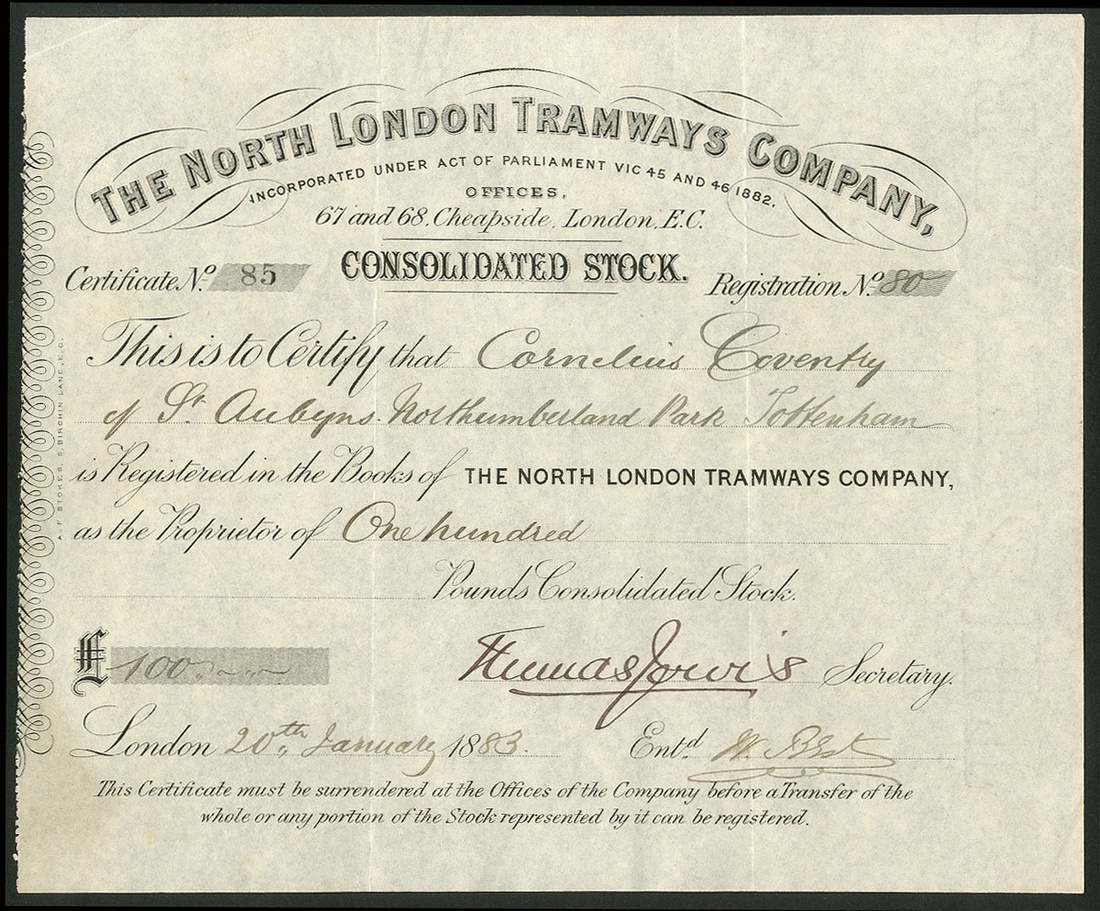 THE NORTH LONDON TRAMWAYS COMPANY,
INCORPORATED UNDER ACT OF PARLIAMENT VIC 45 AND 46 1882.
OFFICES,
67 and 68, Cheapside, London, E.C.
Certificate No. 85
CONSOLIDATED STOCK.
Registration No. 80
This is to Certify that Cornelius Coventry
of St. Aubyns. Northumberland Park Tottenham
is Registered in the Books of THE NORTH LONDON TRAMWAYS COMPANY,
as the Proprietor of One hundred
Pounds Consolidated Stock.
£ 100
Secretary.
London 20th January 1883.
Entd W.
This Certificate must be surrendered at the Offices of the Company before a Transfer of the
whole or any portion of the Stock represented by it can be registered.
A. F. STOKES, 5, BIRCHIN LANE, E.C.